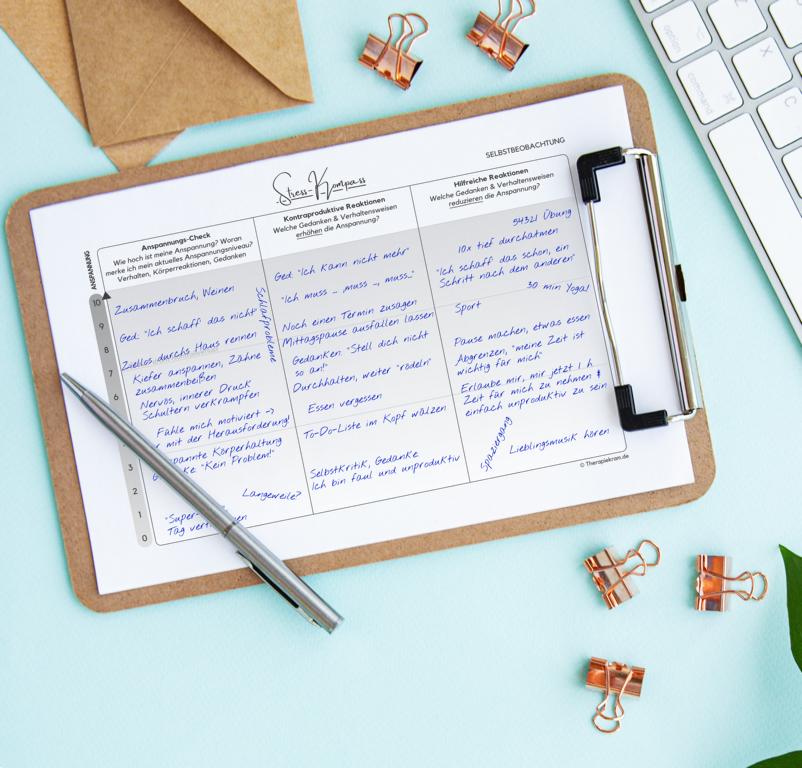 SELBSTBEOBACHTUNG
Stress-Kompass
ANSPANNUNG
Anspannungs-Check
Wie hoch ist meine Anspannung? Woran
merke ich mein aktuelles Anspannungsniveau?
Verhalten, Körperreaktionen, Gedanken
10
9
8
7
6
3
2
1
0
Zusammenbruch, Weinen
Ged. "Ich schaff das nicht"
Schlafprobleme
Ziellos durchs Haus rennen
Kiefer anspannen, Zähne
zusammenbeißen
Nervös, innerer Druck
Schultern verkrampfen
Fühle mich motiviert ->
mit der Herausforderung!
Körperhaltung
"Kein Problem!"
Langeweile?
"Super-
Tag
Kontraproduktive Reaktionen
Welche Gedanken & Verhaltensweisen
erhöhen die Anspannung?
Ged. "Ich kann nicht mehr"
"Ich muss _ ,muss _, muss_"
Noch einen Termin zusagen
Mittagspause ausfallen lassen
Gedanken: "Stell dich nicht
so an!"
Durchhalten, weiter "rödeln"
Essen vergessen
To-Do-Liste im Kopf wälzen
Selbstkritik, Gedanke
Ich bin faul und unproduktiv
Hilfreiche Reaktionen
Welche Gedanken & Verhaltensweisen
reduzieren die Anspannung?
54321 Übung
10x tief durchatmen
"Ich schaff das schon, ein
Schritt nach dem anderen"
30 min Yoga!
Sport
Pause machen, etwas essen
Abgrenzen, "meine Zeit ist
wichtig für mich"
Erlaube mir, mir jetzt 1 h
Zeit für mich zu nehmen &
einfach unproduktiv zu sein
Spaziergang
Lieblingsmusik hören
© Therapiekram.de
option
command
X
C